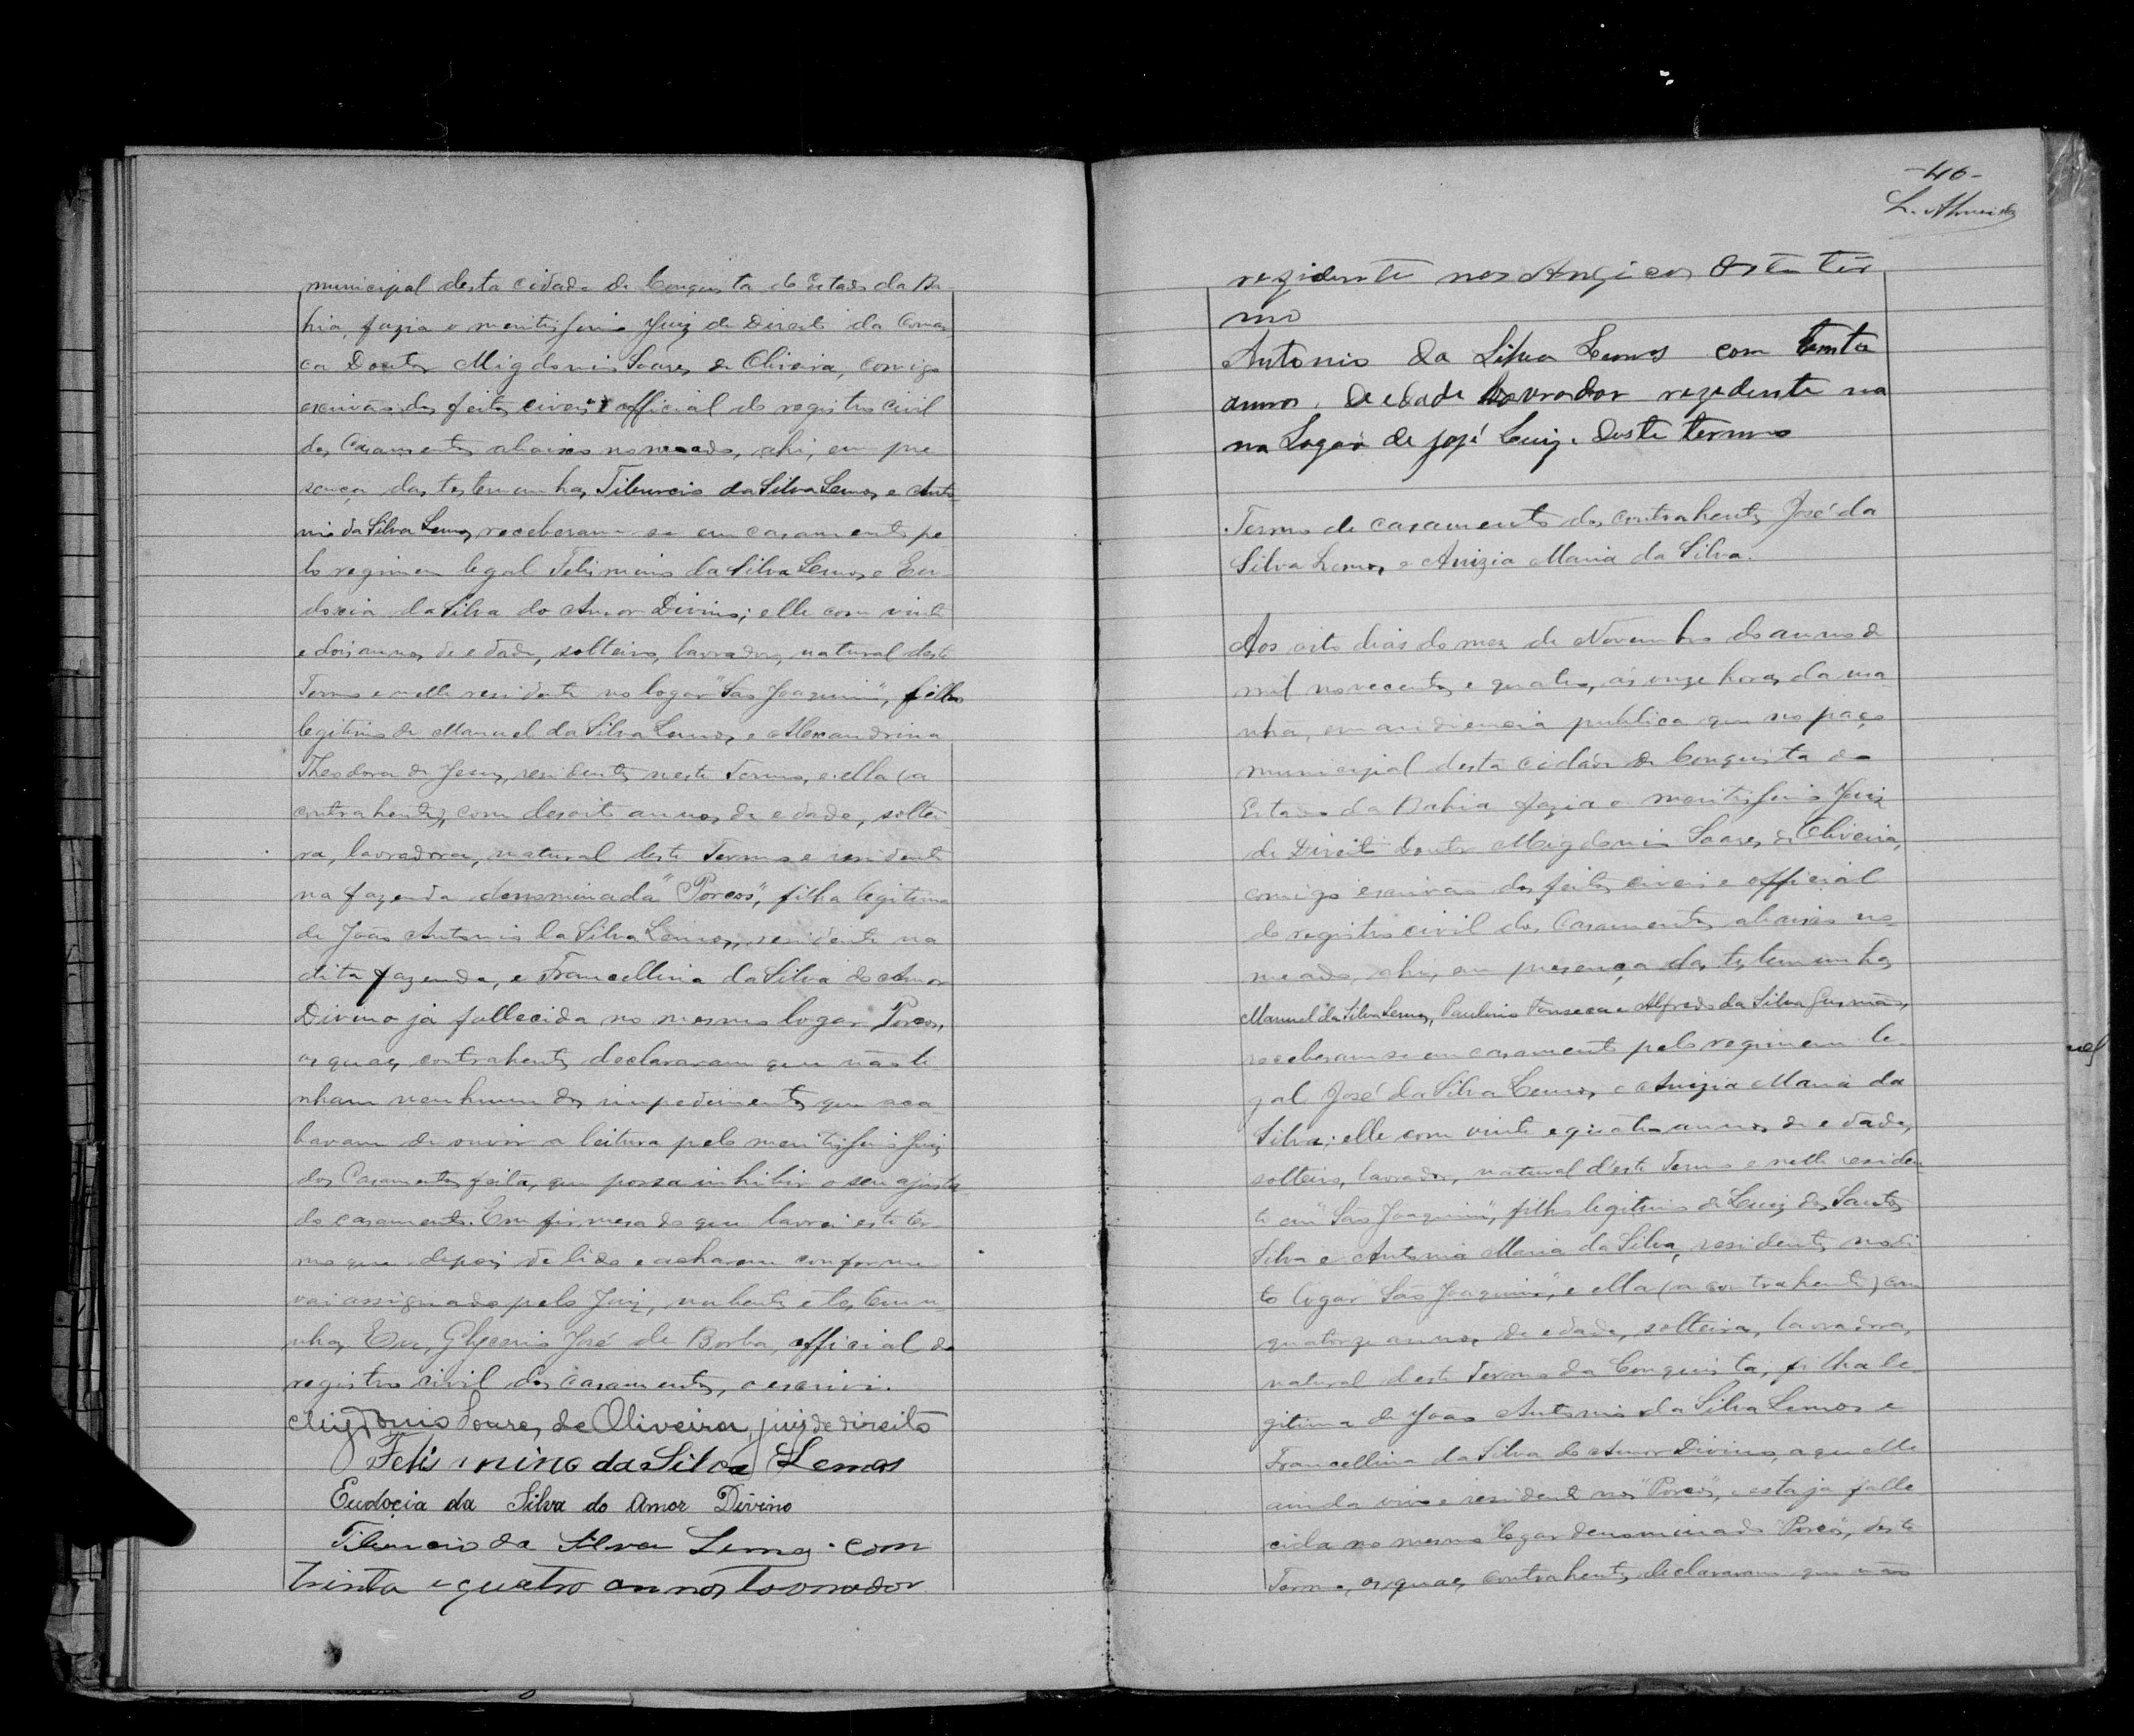 municipal desta cidade de Conquista do Estado da Ba-
hia, fazia o meritissimo Juiz de Direito da Comar
ca Doutor Migdonio Soares de Oliveira, comigo
escrivão dos feitos civeis e official do registro civil
dos Casamentos abaixo nomeado, ahi, em pre
sença das testemunhas Tiburcio da Silva Lemos e Anto
nio da Silva Lemos, receberam-se em casamento pe
lo regimen legal Felismino da Silva Lemos e Eu-
docia da Silva do Amor Divino; elle com vinte
e dois annos de edade, solteiro, lavrador, natural deste
Termo e nelle residente no logar "São Joaquim", filho
legitimo de Manuel da Silva Lemos e Alexandrina
Theodora de Jesus, residentes neste Termo, e ella (a
contrahente), com desoito annos de edade, soltei-
ra, lavradora, natural deste Termo e residente
na fazenda denominada "Porcos", filha legitima
de João Antonio da Silva Lemos, residente na
dita fazenda, e Francellina da Silva do Amor
Divino já fallecida no mesmo logar Porcos,
os quaes contrahentes declararam que não ti
nham nenhum dos impedimentos que aca
bavam de ouvir a leitura pelo meritissimo Juiz
dos Casamentos feita, que possa inhibir o seu ajuste
do casamento. Em firmesa do que lavrei este ter-
mo que depois de lido e acharem conforme
vai assignado pelo Juiz, nubentes e testemu-
nhas. Eu, Glycerio José de Borba, official do
registro civil dos casamentos, o escrivi.
Migdonio Soares de Oliveira, juiz de direito
Felismino da Silva Lemos
Eudocia da Silva do Amor Divino
Tiburcio da Silva Lemos com
trinta e quatro annos lavrador
-46-
L. Almeida
rezidente nos Angicos deste ter
mo
Antonio da Silva Lemos com trinta
annos de edade lavrador rezedente na
na Lagôa de José Luiz deste termo
Termo de casamento dos contrahentes José da
Silva Lemos e Anizia Maria da Silva.
Aos oito dias do mez de Novembro do anno de
mil novecentos e quatro, ás onze horas da ma
nhã, em audiencia publica que no paço
municipal desta cidade de Conquista do
Estado da Bahia fazia o meritissimo Juiz
de Direito Doutor Migdonio Soares de Oliveira,
comigo escrivão dos feitos civeis e official
do registro civil dos Casamentos abaixo no-
meado, ahi, em presença das testemunhas
Manuel da Silva Lemos, Paulino Fonseca e Alfredo da Silva Gusmão,
receberam-se em casamento pelo regimem le-
gal José da Silva Lemos e Anizia Maria da
Silva; elle com vinte e quatro annos de edade,
solteiro, lavrador, natural d'este Termo e nelle residen
te em "São Joaquim", filho legitimo de Luiz dos Santos
Silva e Antonia Maria da Silva, residentes no di
to logar "São Joaquim", e ella (a contrahente) com
quatorze annos de edade, solteira, lavradora,
natural deste Termo da Conquista, filha le-
gitima de João Antonio da Silva Lemos e
Francellina da Silva do Amor Divino, aquelle
ainda vivo e residente nos "Porcos", e esta já falle
cida no mesmo logar denominado "Porcos", deste
Termo, os quaes contrahentes declararam que não